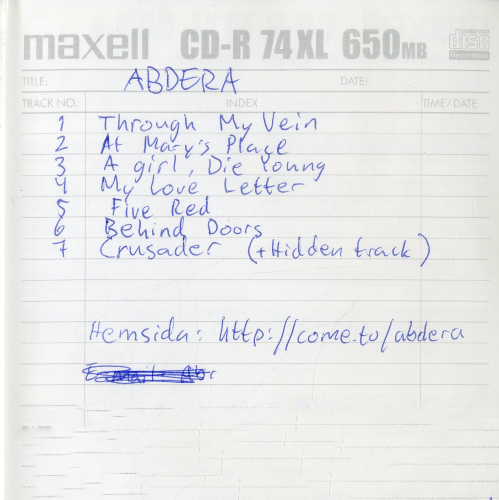 maxell CD-R 74XL 650MB disc Recordable
TITLE: ABDERA DATE:
TRACK NO. INDEX TIME/DATE
1 Through My Vein
2 At Mary's Place
3 A girl, Die Young
4 My Love Letter
5 Five Red
6 Behind Doors
7 Crusader (+Hidden track)
Hemsida: http://come.to/abdera